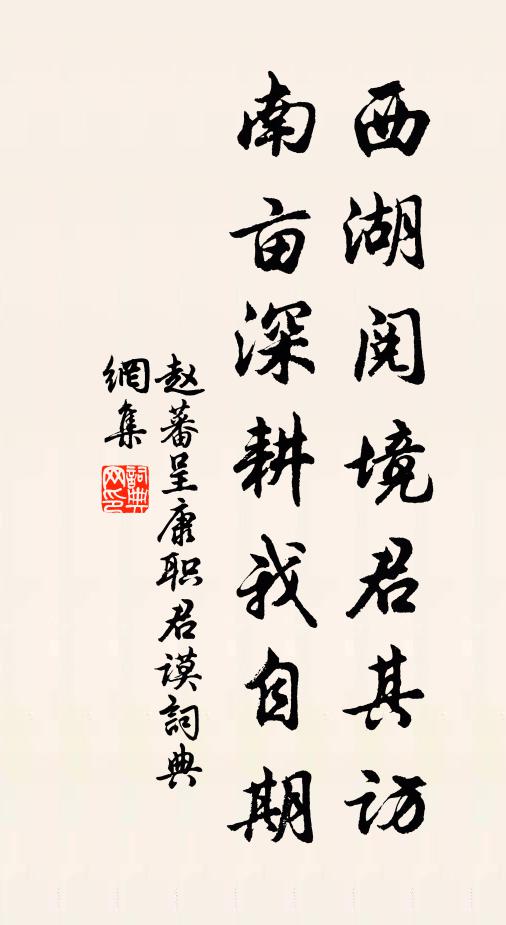 西湖阅境君其访
南亩深耕我自期
赵蕃呈康职君谟詞典
網集
詞典網印